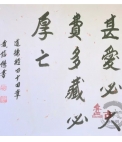 甚愛必大
費多藏必
厚亡
道德經四十四章